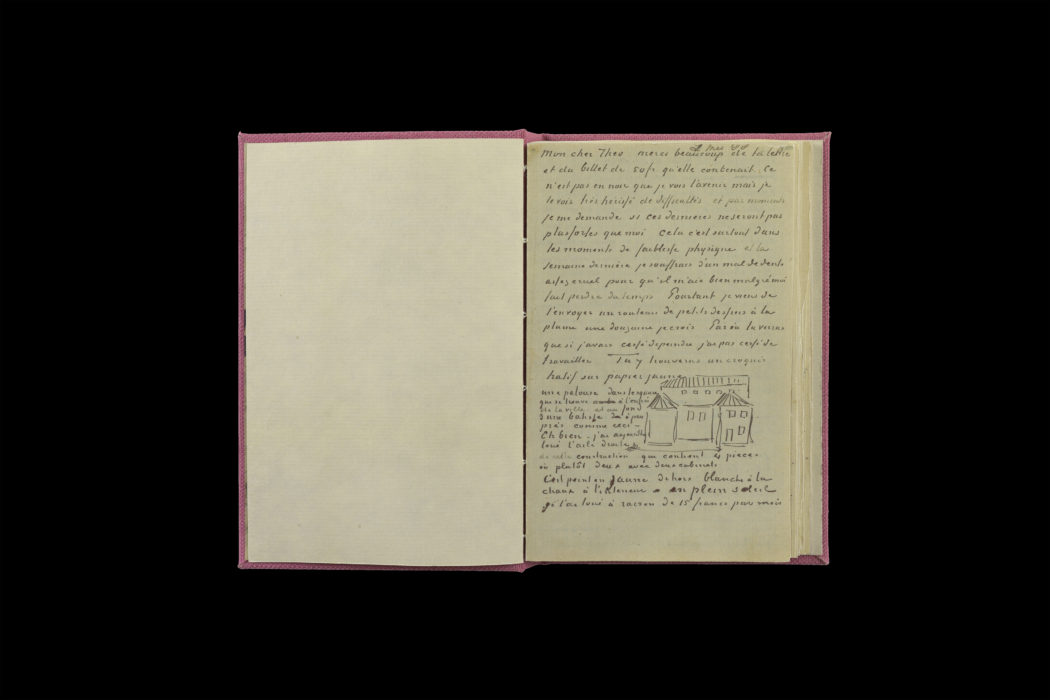 1 mai 88
mon cher Theo merci beaucoup de ta lettre
et du billet de 50 fr qu'elle contenait. Ce
n'est pas en noir que je vois l'avenir mais je
le vois très hérissé de difficultés et par moments
je me demande si ces dernieres ne seront pas
plus fortes que moi Cela c'est surtout dans
les moments de faiblesse physique et la
semaine dernière je souffrais d'un mal de dents
assez cruel pour qu'il m'aie bien malgré moi
fait perdre du temps Pourtant je viens de
t'envoyer un rouleau de petits dessins à la
plume une douzaine je crois Par où tu verras
que si j'avais cessé de peindre j'ai pas cessé de
travailler Tu y trouveras un croquis
hatif sur papier jaune
une pelouse dans le square
qui se trouve à l'entrée
de la ville et au fond
d'une batisse à peu
près comme ceci –
Eh bien – j'ai aujourd'hui
loué l'aile droite
de cette construction qui contient 4 pieces
ou plutôt deux avec deux cabinets
C'est peint en jaune dehors blanchi à la
chaux à l'interieur – en plein soleil
je l'ai loué à raison de 15 francs par mois